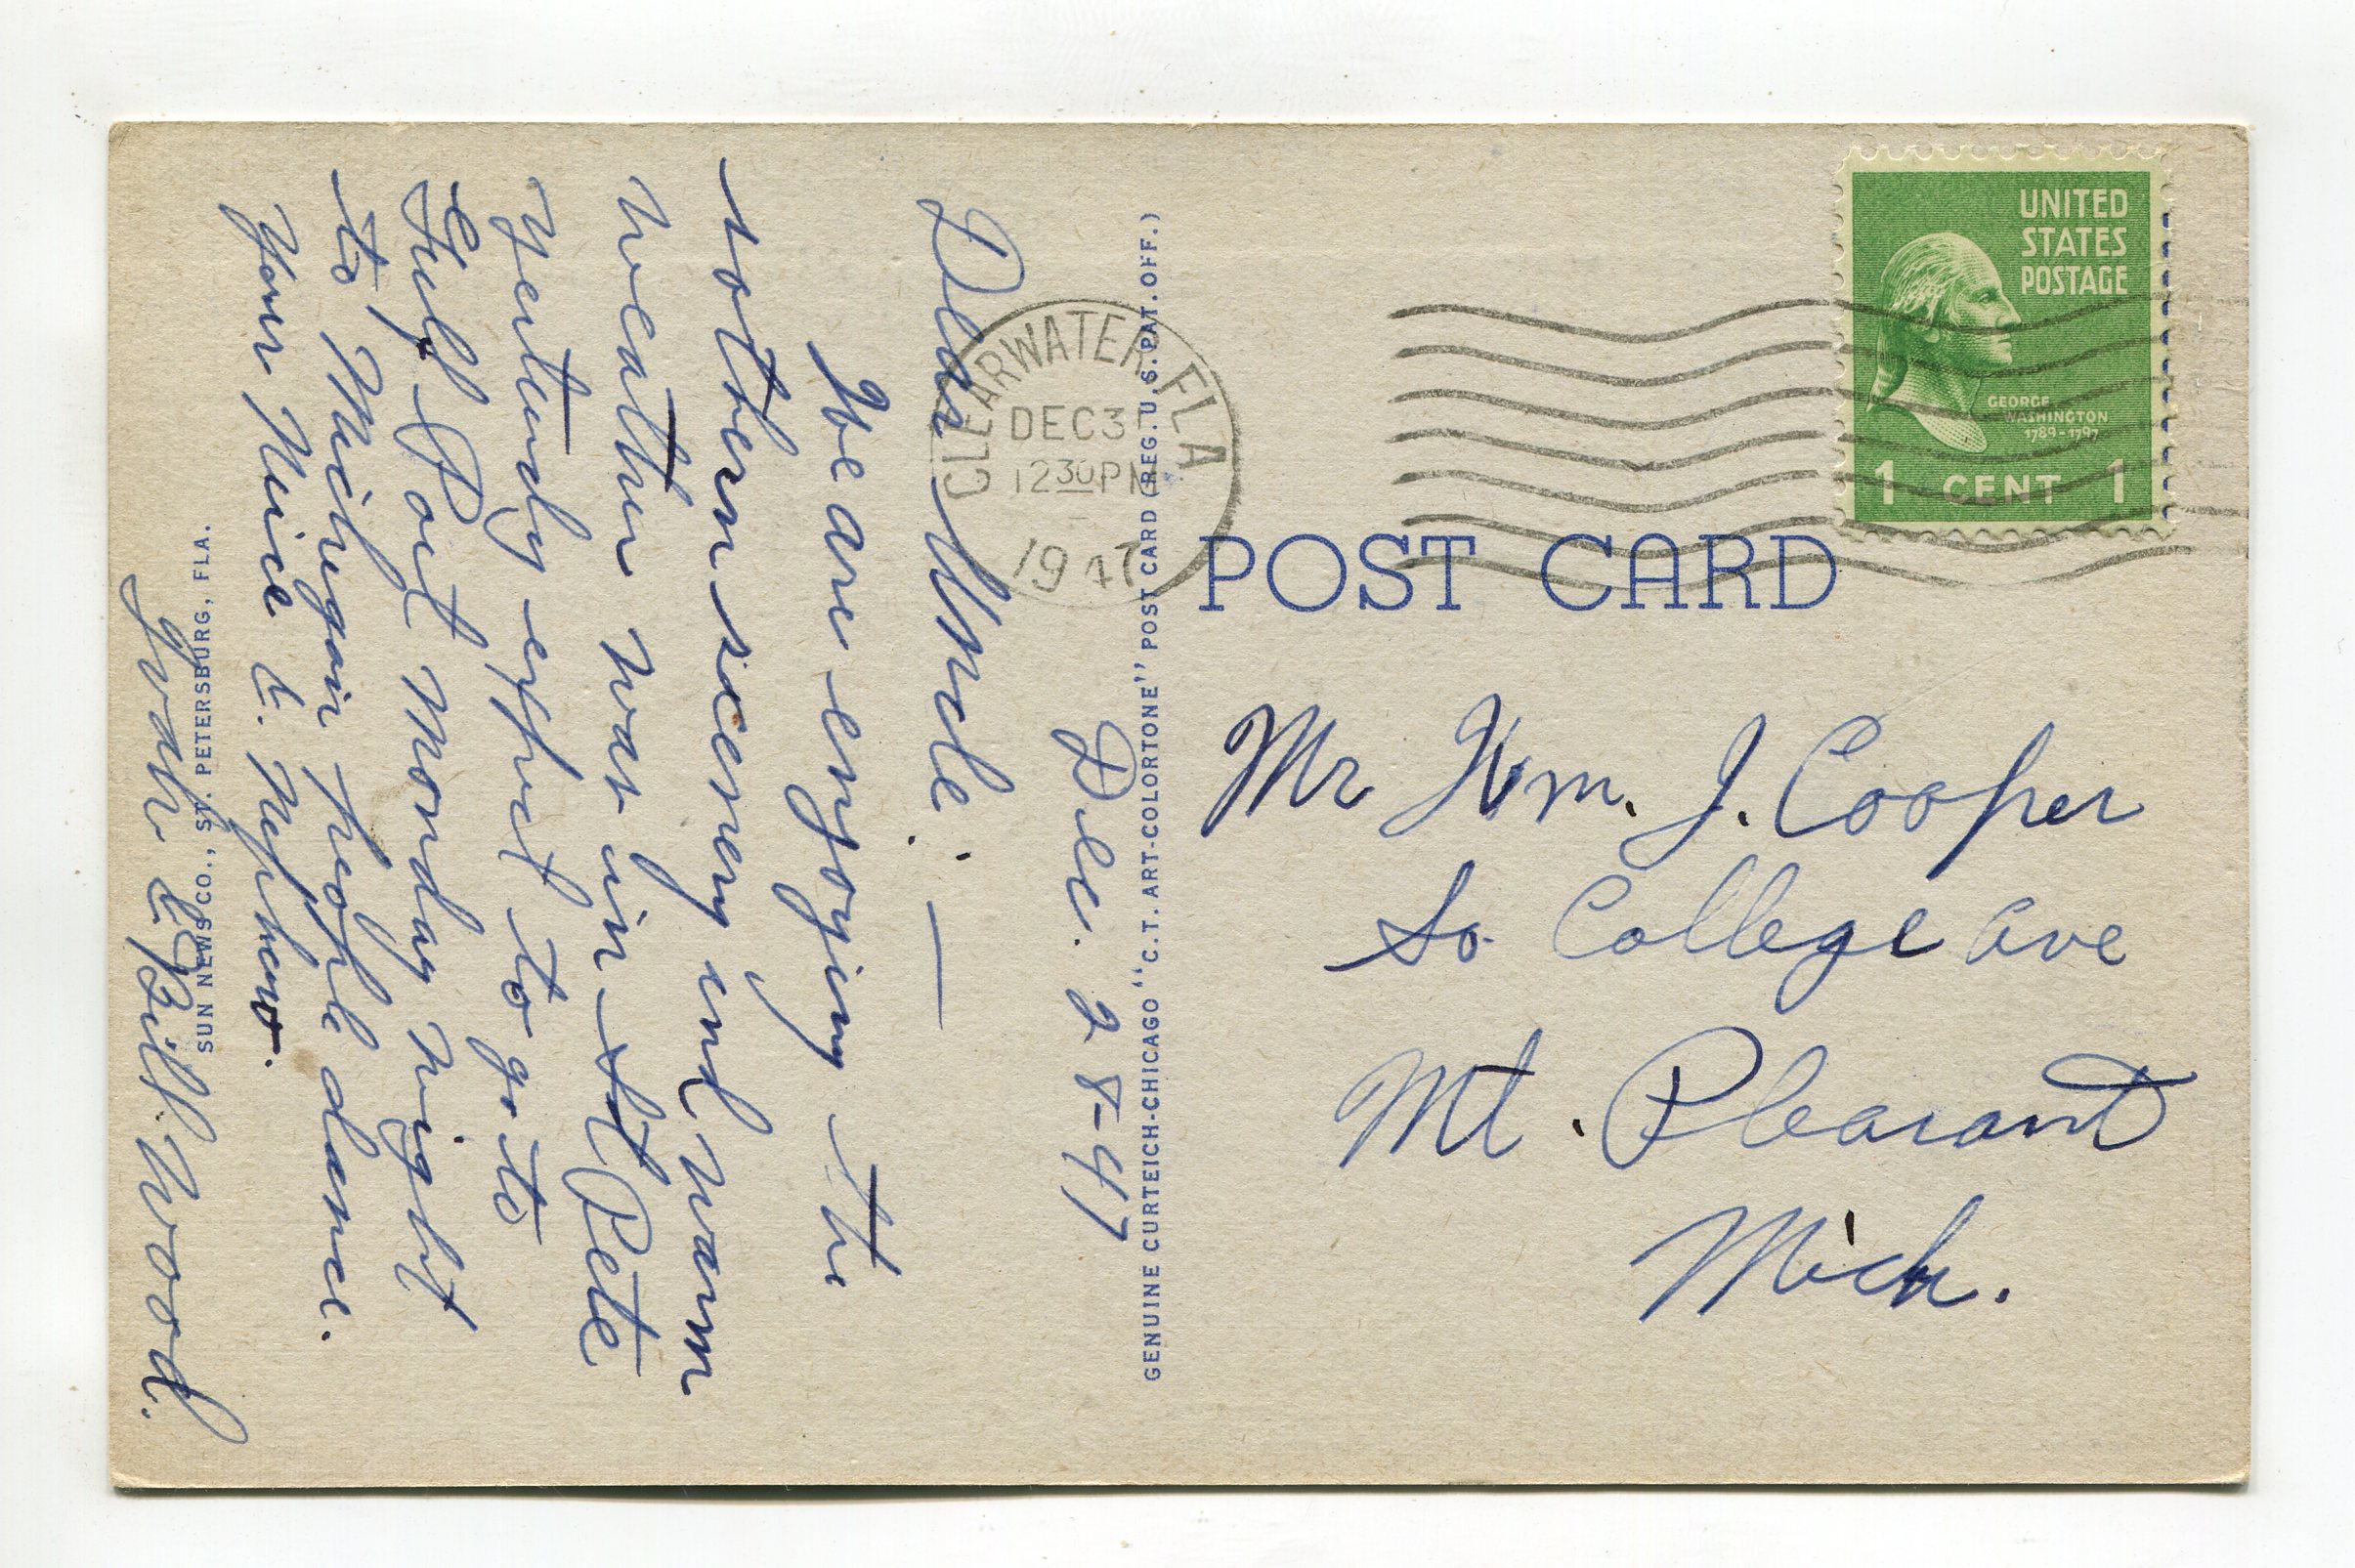 UNITED
STATES
POSTAGE
GEORGE
WASHINGTON
1789-1797
1 CENT 1
CLEARWATER FLA
1230PM
1947
POST CARD
Mr Wm. J. Cooper
So. College Ave
Mt. Pleasant
Mich.
GENUINE CURTEICH-CHICAGO "C.T. ART-COLORTONE" POST CARD (REG. U.S. PAT. OFF.)
Dec. 28-47
Dear Uncle: —
We are enjoying the
sothern scenery and warm
weather was in St Pete
yesterday expect to go to
Gulf Port Monday night
to Michegain people dance.
Your Neice & Nephew.
Ivah & Bill Wood.
SUN NEWS CO., ST. PETERSBURG, FLA.